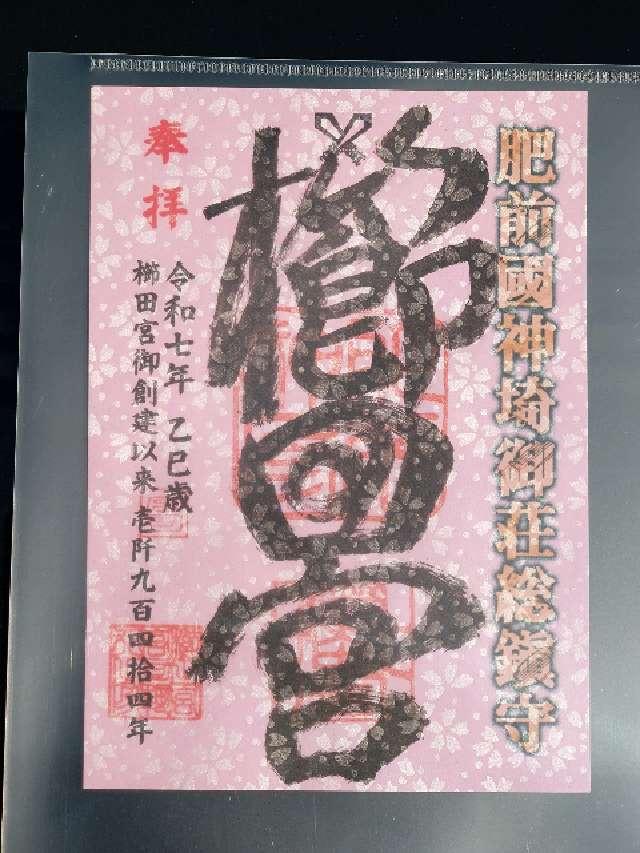 肥前國神埼御荘総鎮守
櫛田宮
奉拝
令和七年 乙巳歳
櫛田宮御創建以来壱阡九百四拾四年